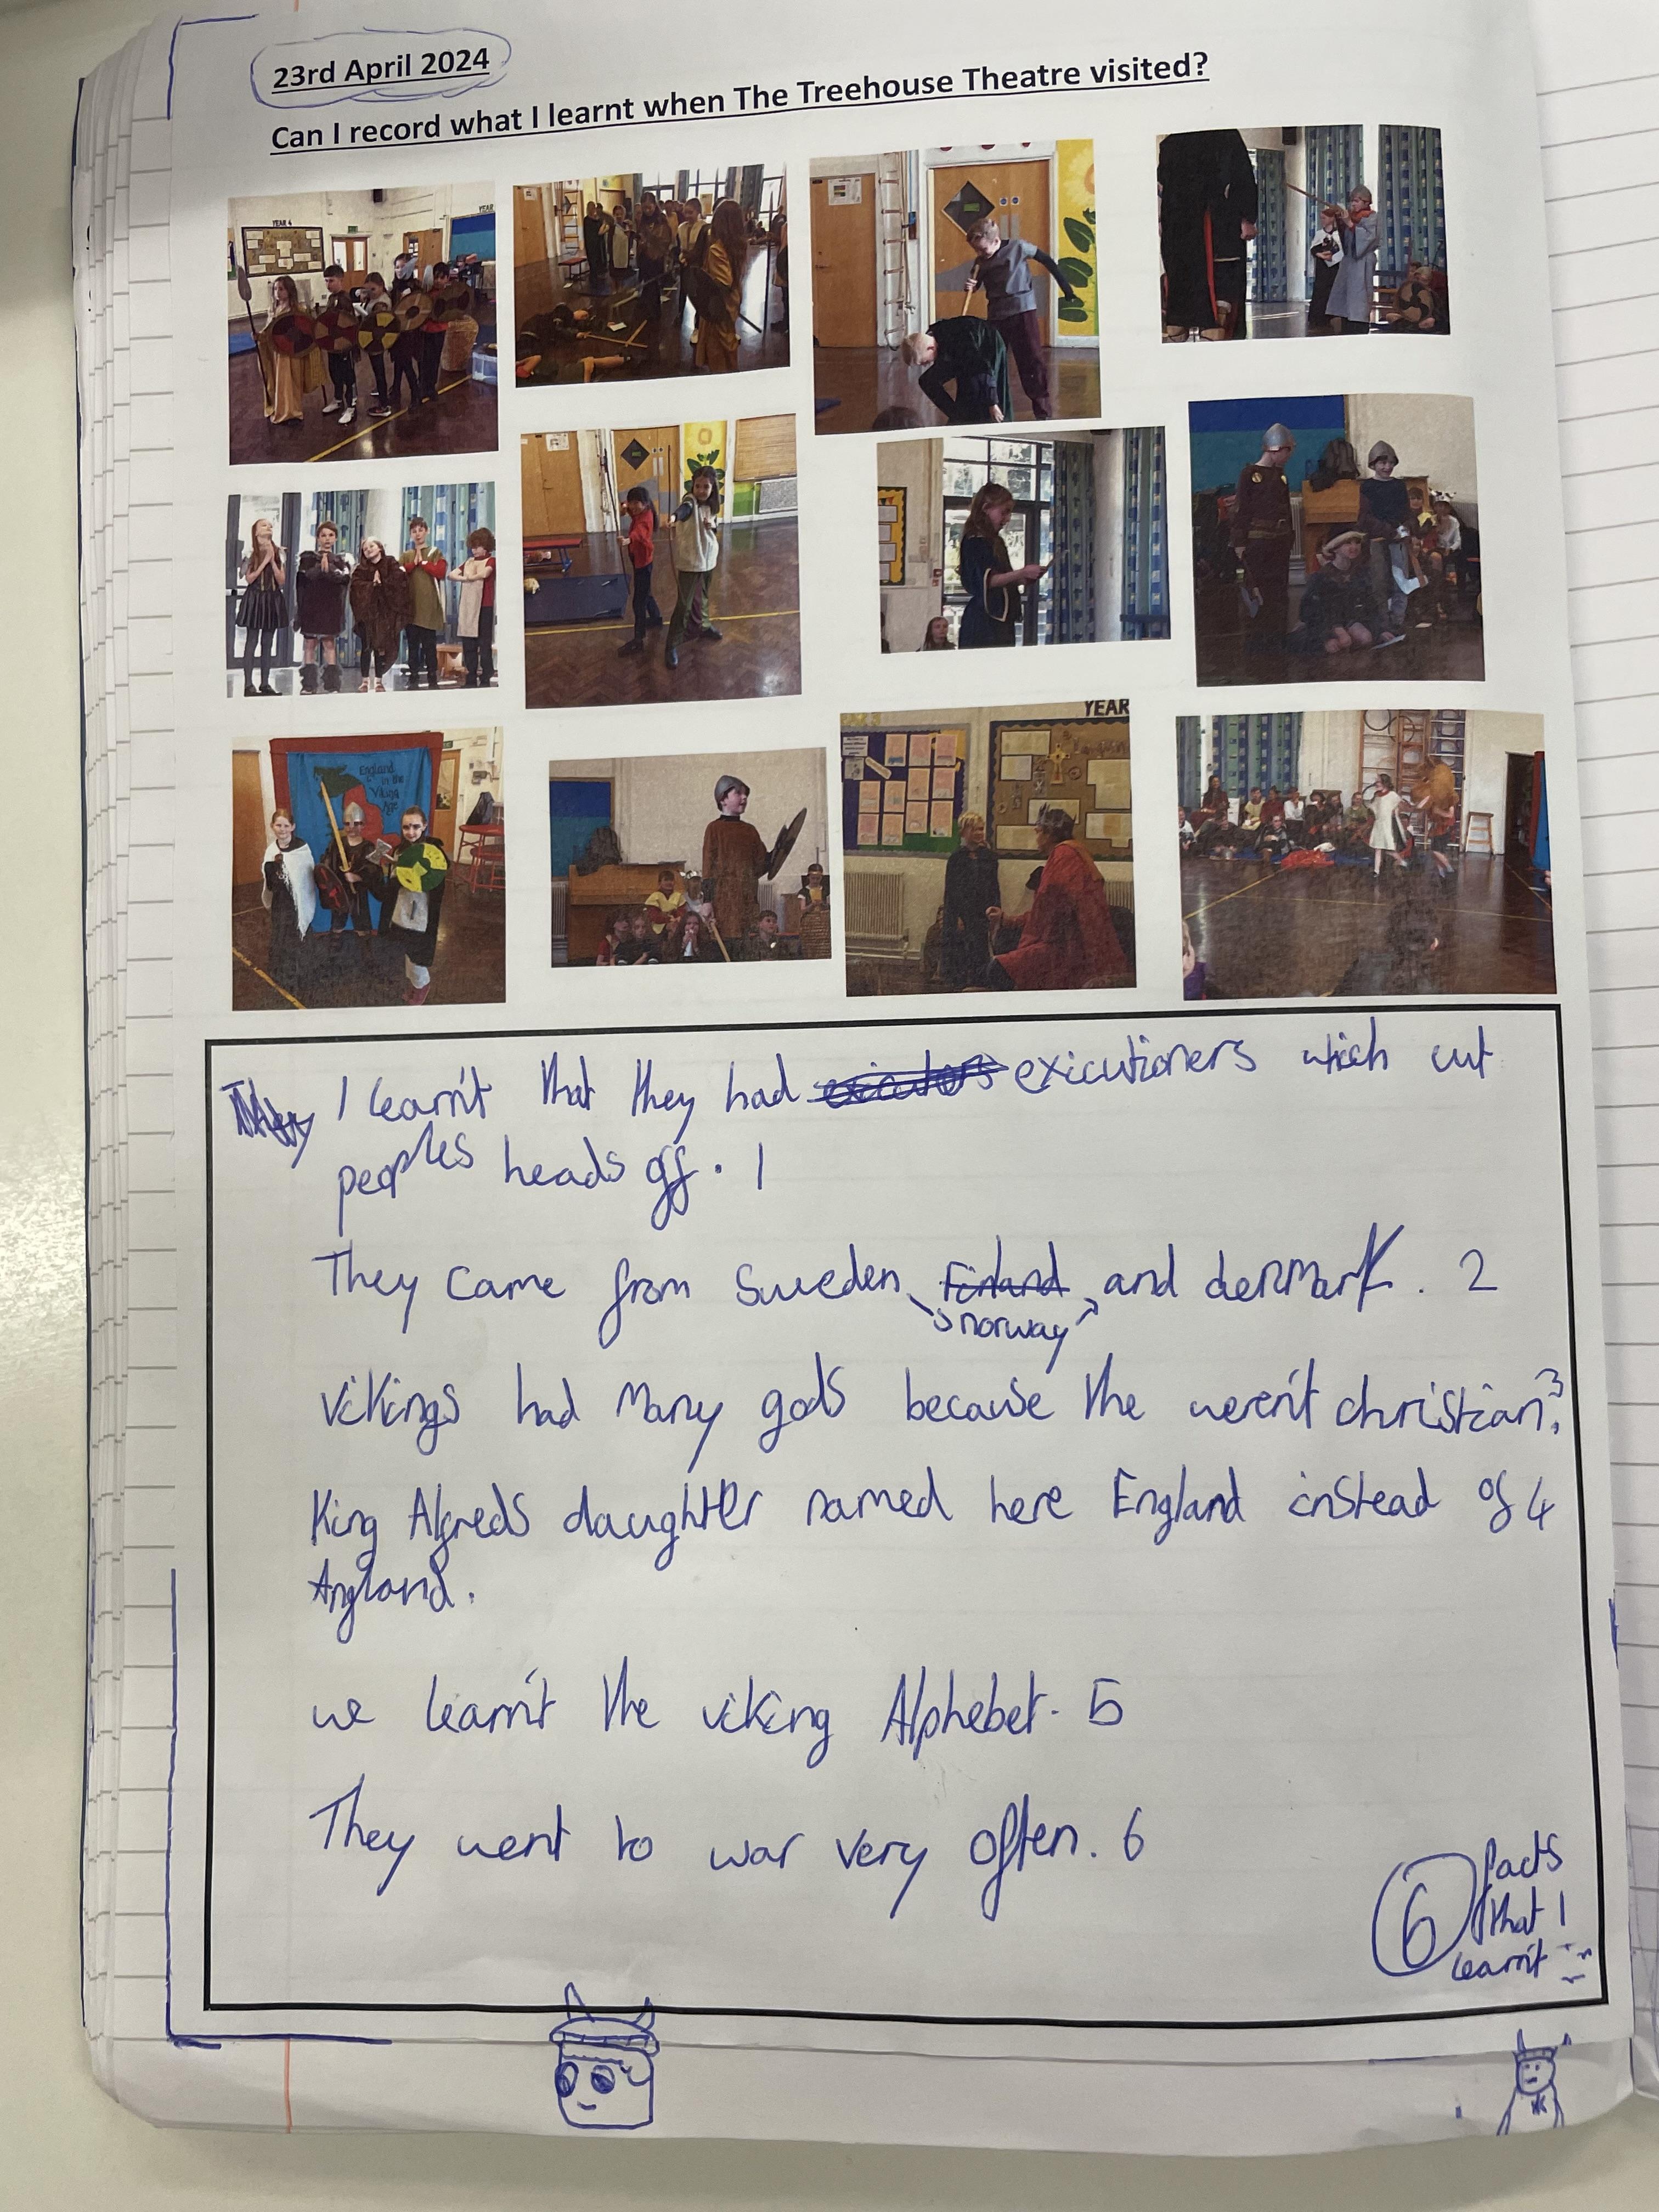 23rd April 2024
Can I record what I learnt when The Treehouse Theatre visited?
YEAR 4
YEAR
England
in the
Viking
Age
YEAR
They I learn't that they had exicutors exicutioners which cut
peoples heads off. 1
They came from Sweden, Finland, and denmark. 2
norway
vikings had many gods because the weren't christian. 3
King Alfreds daughter named here England instead of 4
Angland.
we learn't the viking Alphebet. 5
They went to war very often. 6
6 facts
that I
learn't